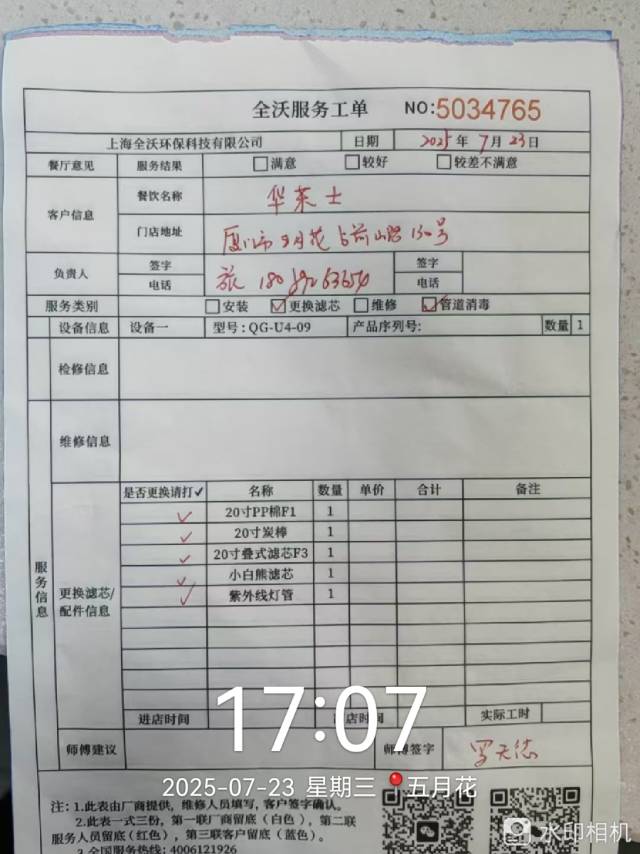 全沃服务工单 NO:5034765
上海全沃环保科技有限公司 日期 2025年7月23日
餐厅意见 服务结果 满意 较好 较差不满意
客户信息 餐饮名称 华莱士
门店地址 厦门市五月花 前山路130号
负责人 签字 签字
电话 电话
服务类别 安装 ☑更换滤芯 维修 ☑管道消毒
设备信息 设备一 型号:QG-U4-09 产品序列号: 数量 1
检修信息
维修信息
服务信息
更换滤芯/配件信息
是否更换请打✓ 名称 数量 单价 合计 备注
✓ 20寸PP棉F1 1
✓ 20寸炭棒 1
✓ 20寸叠式滤芯F3 1
✓ 小白熊滤芯 1
✓ 紫外线灯管 1
进店时间 店时间 实际工时
17:07
师傅建议 师傅签字
2025-07-23 星期三 五月花
注:1.此表由厂商提供,维修人员填写,客户签字确认。
2.此表一式三份,第一联厂商留底(白色),第二联
服务人员留底(红色),第三联客户留底(蓝色)。
3.全国服务热线:4006121926
水印相机